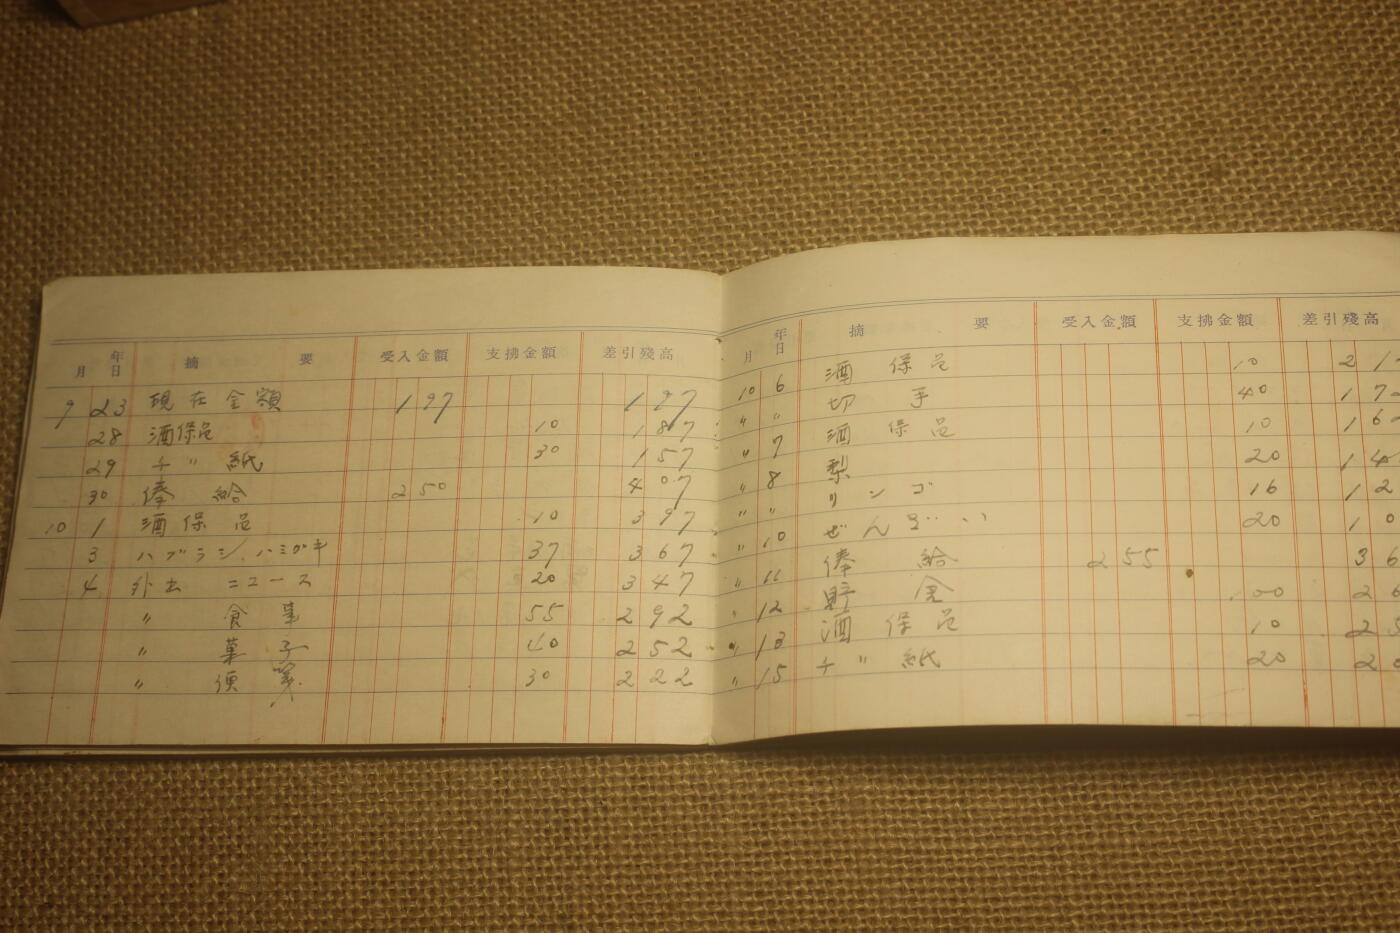 年
月 日 摘 要 受入金額 支拂金額 差引殘高
9 23 現在金額 197 197
28 酒保品 10 187
29 チ〃紙 30 157
30 俸給 250 407
10 1 酒保品 10 397
3 ハブラシ ハミガキ 37 367
4 外出 ニュース 20 347
〃 食事 55 292
〃 菓子 40 252
〃 便箋 30 222
年
月 日 摘 要 受入金額 支拂金額 差引殘高
10 6 酒保品 10 21
〃 〃 切手 40 172
〃 7 酒保品 10 162
〃 8 梨 20 14
〃 〃 リンゴ 16 12
〃 10 ぜんざい 20 10
〃 11 俸給 255 36
〃 12 貯金 100 26
〃 13 酒保品 10 25
〃 15 チ〃紙 20